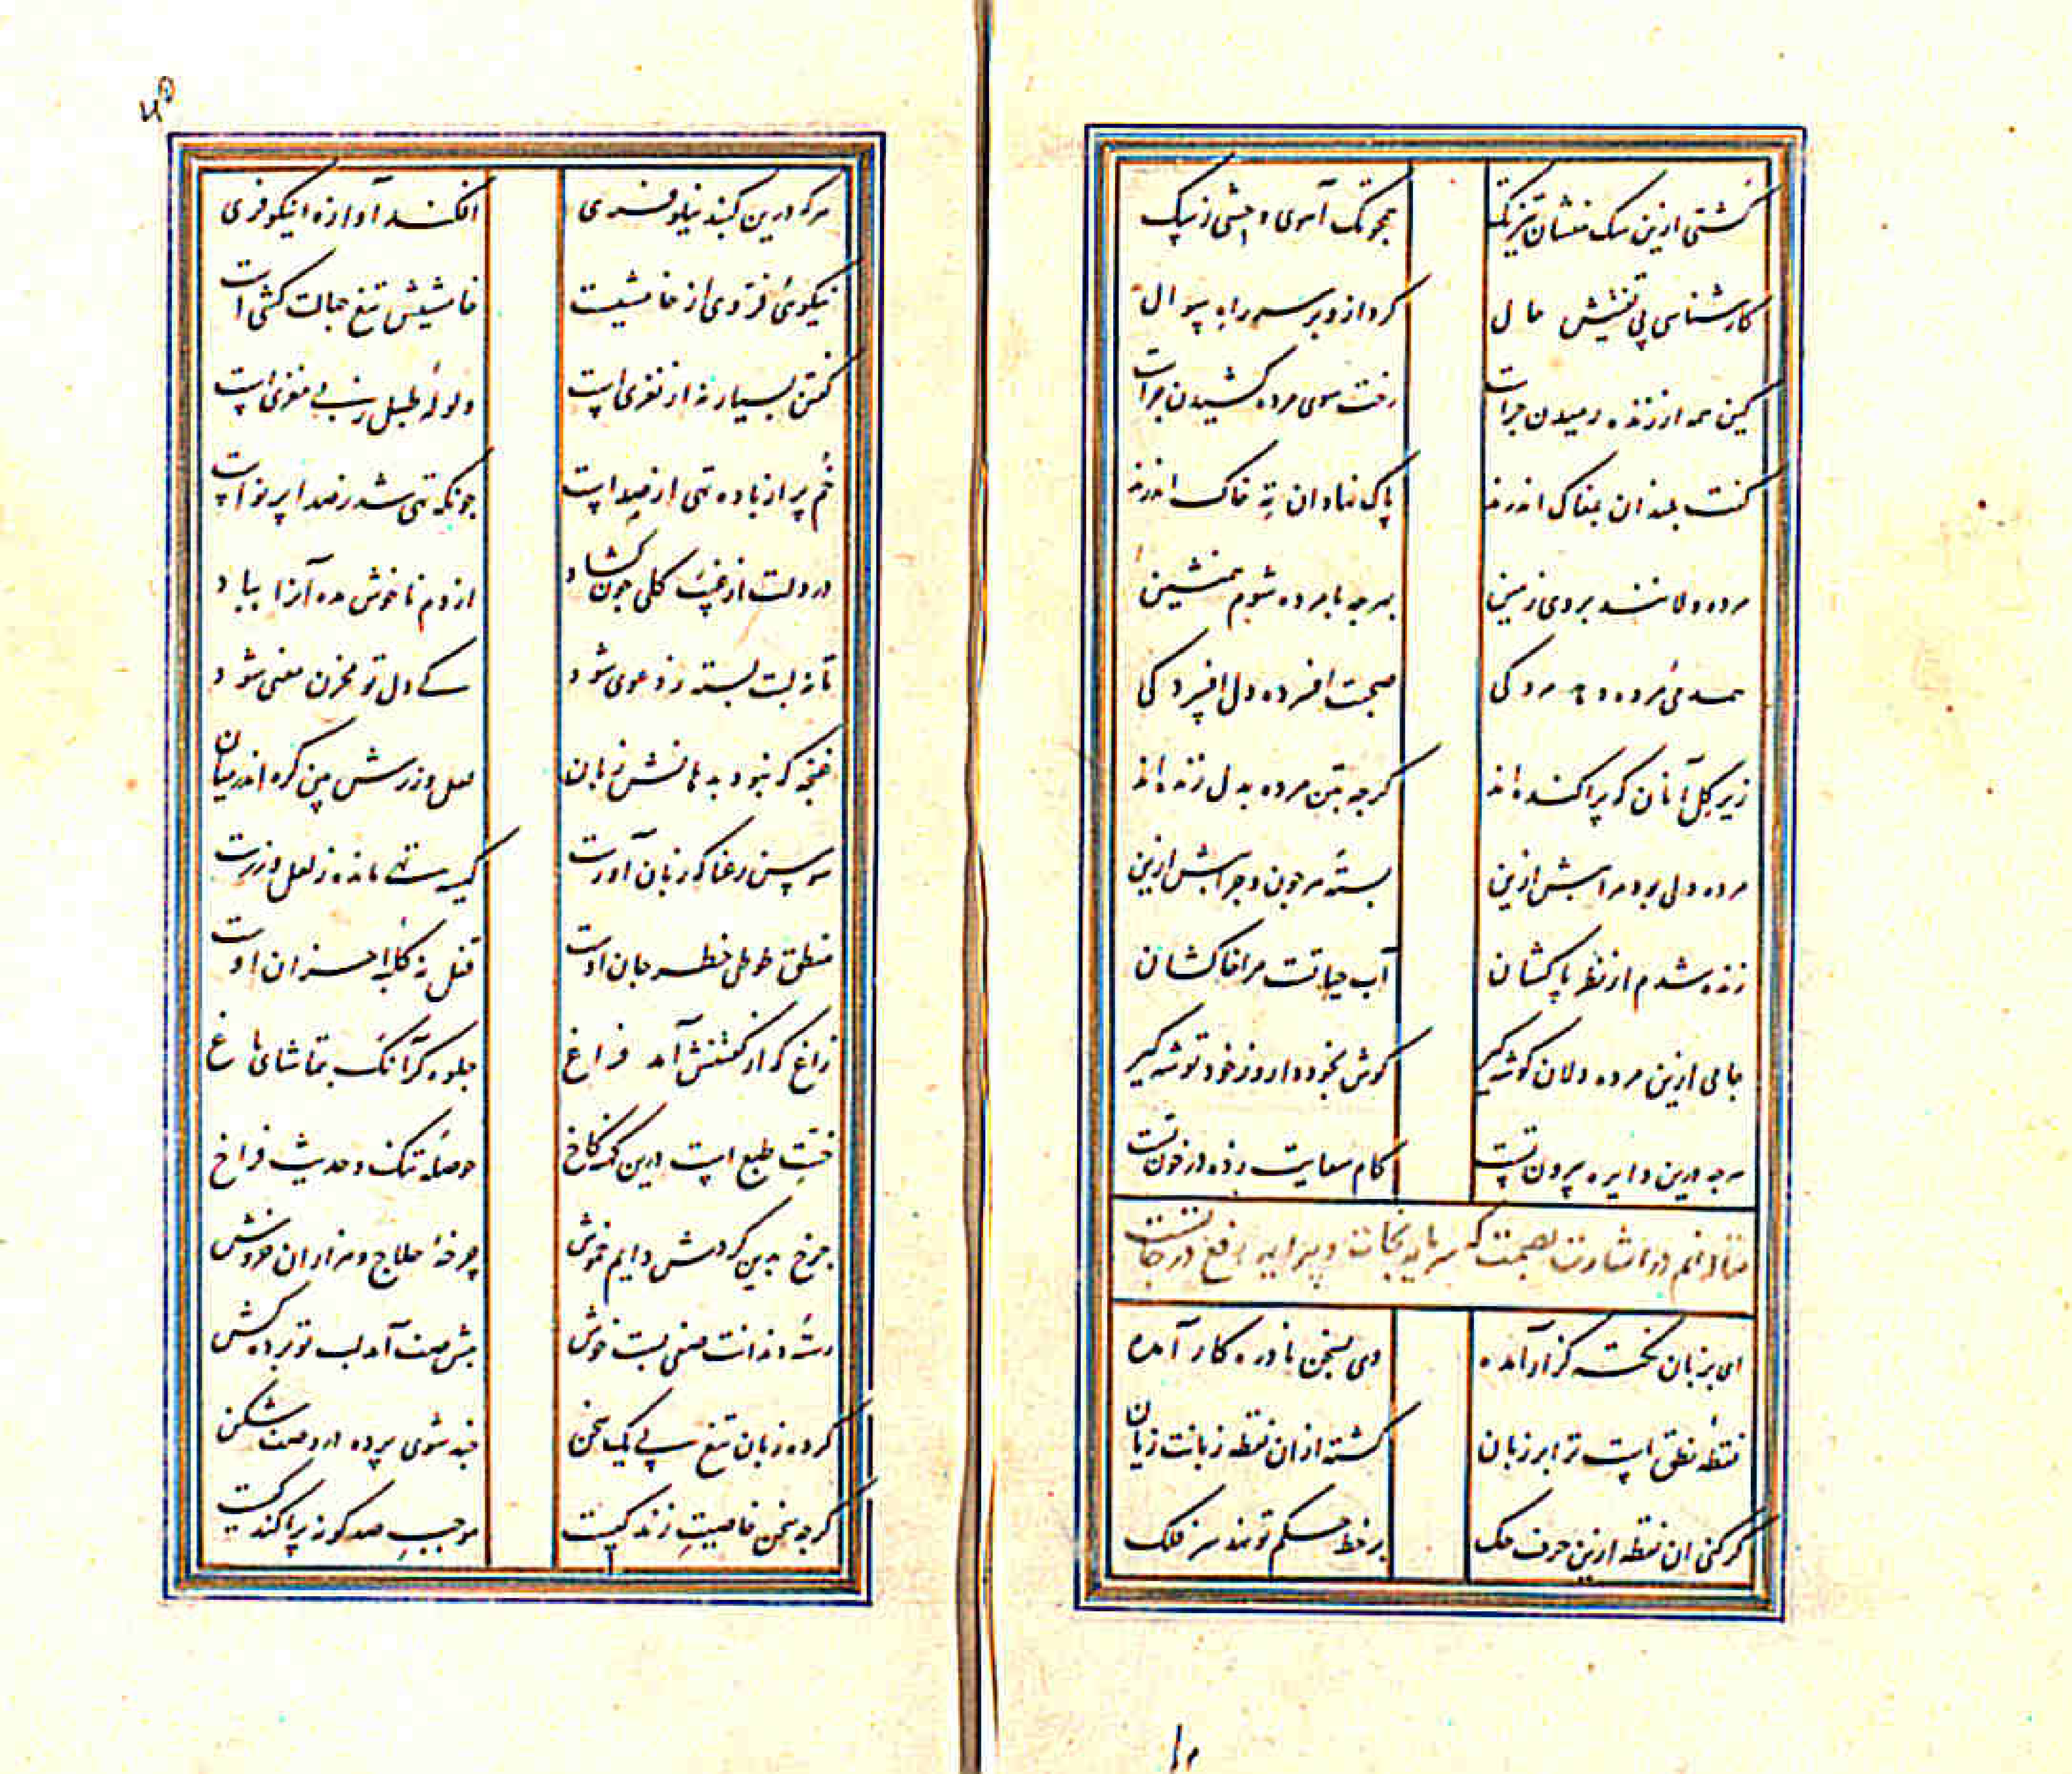 گشتی ازین سک منشان تیزتک همچو تک آهوی وحشی ز سک
کارشناسی پی تفتیش حال کرد ازو بر سر راه سوال
کین همه از زنده رمیدن چراست رخت سوی مرده کشیدن چراست
گفت بلندان بمغاک اندرند پاک نهادان ته خاک اندرند
مرده دلانند بروی زمین بهر چه با مرده شوم همنشین
همدمی مرده دهد مردکی صحبت افسرده دل افسردکی
زیر گل آنان که پراکنده‌اند کرچه بتن مرده بدل زنده‌اند
مرده دلی بود مرا پیش ازین بسته هر چون و چرا پیش ازین
زنده شدم از نظر پاکشان آب حیاتست مرا خاکشان
جامی ازین مرده دلان کوشه کیر کوش بخود دار و ز خود توشه کیر
هر چه درین دایره بیرون تست کام سعایت زده در خون تست
مقاله نهم در اشارت بصمت که سرمایه نجات و پیرایه رفع درجاتست
ای بزبان نکته کزار آمده وی بسخن نادره کار آمده
نقطهٔ نطق است ترا بر زبان کشته از ان نقطه زبانت زیان
کر کنی ان نقطه ازین حرف حک بر خط حکم تو نهد سر فلک
۱۰
هر که درین کنبد نیلوفری افکند آوازهٔ نیکوفری
نیکوئ فر وی از خامشیست خامشیش تیغ جهالت کشی است
گفتن بسیار نه از نغزی است ولولهٔ طبل ز بی مغزی است
خم پر از باده تهی از صداست چونکه تهی شد ز صدا پر نواست
در دلت از غیب کلی چون کشاد از دم ناخوش مده آنرا بباد
تا نه لبت بسته ز دعوی شود کی دل تو مخزن معنی شود
غنچه که نبود بدهانش زبان لعل و زرش بین کره اندر میان
سوسن رعنا که زبان آورست کیسه تهی مانده ز لعل و زرست
منطق طوطی خطر جان اوست قفل نه کلبهٔ احزان اوست
زاغ که از کفتنش آمد فراغ جلوه کر آنک بتماشای باغ
خست طبع است درین کهنه کاخ حوصله تنک و حدیث فراخ
چرخ بدین کردش دایم خموش چرخهٔ حلاج و هزاران خروش
رسته دندانت صفی بست خوش پیش صف آمد لب تو پرده کش
کرده زبان تیغ پی یک سخن چند شوی پرده در و صف شکن
کرچه سخن خاصیت زندکیست موجب صد کونه پراکندکیست